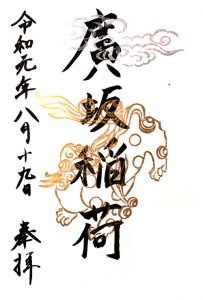 奉拝
廣坂稲荷
令和元年八月十九日